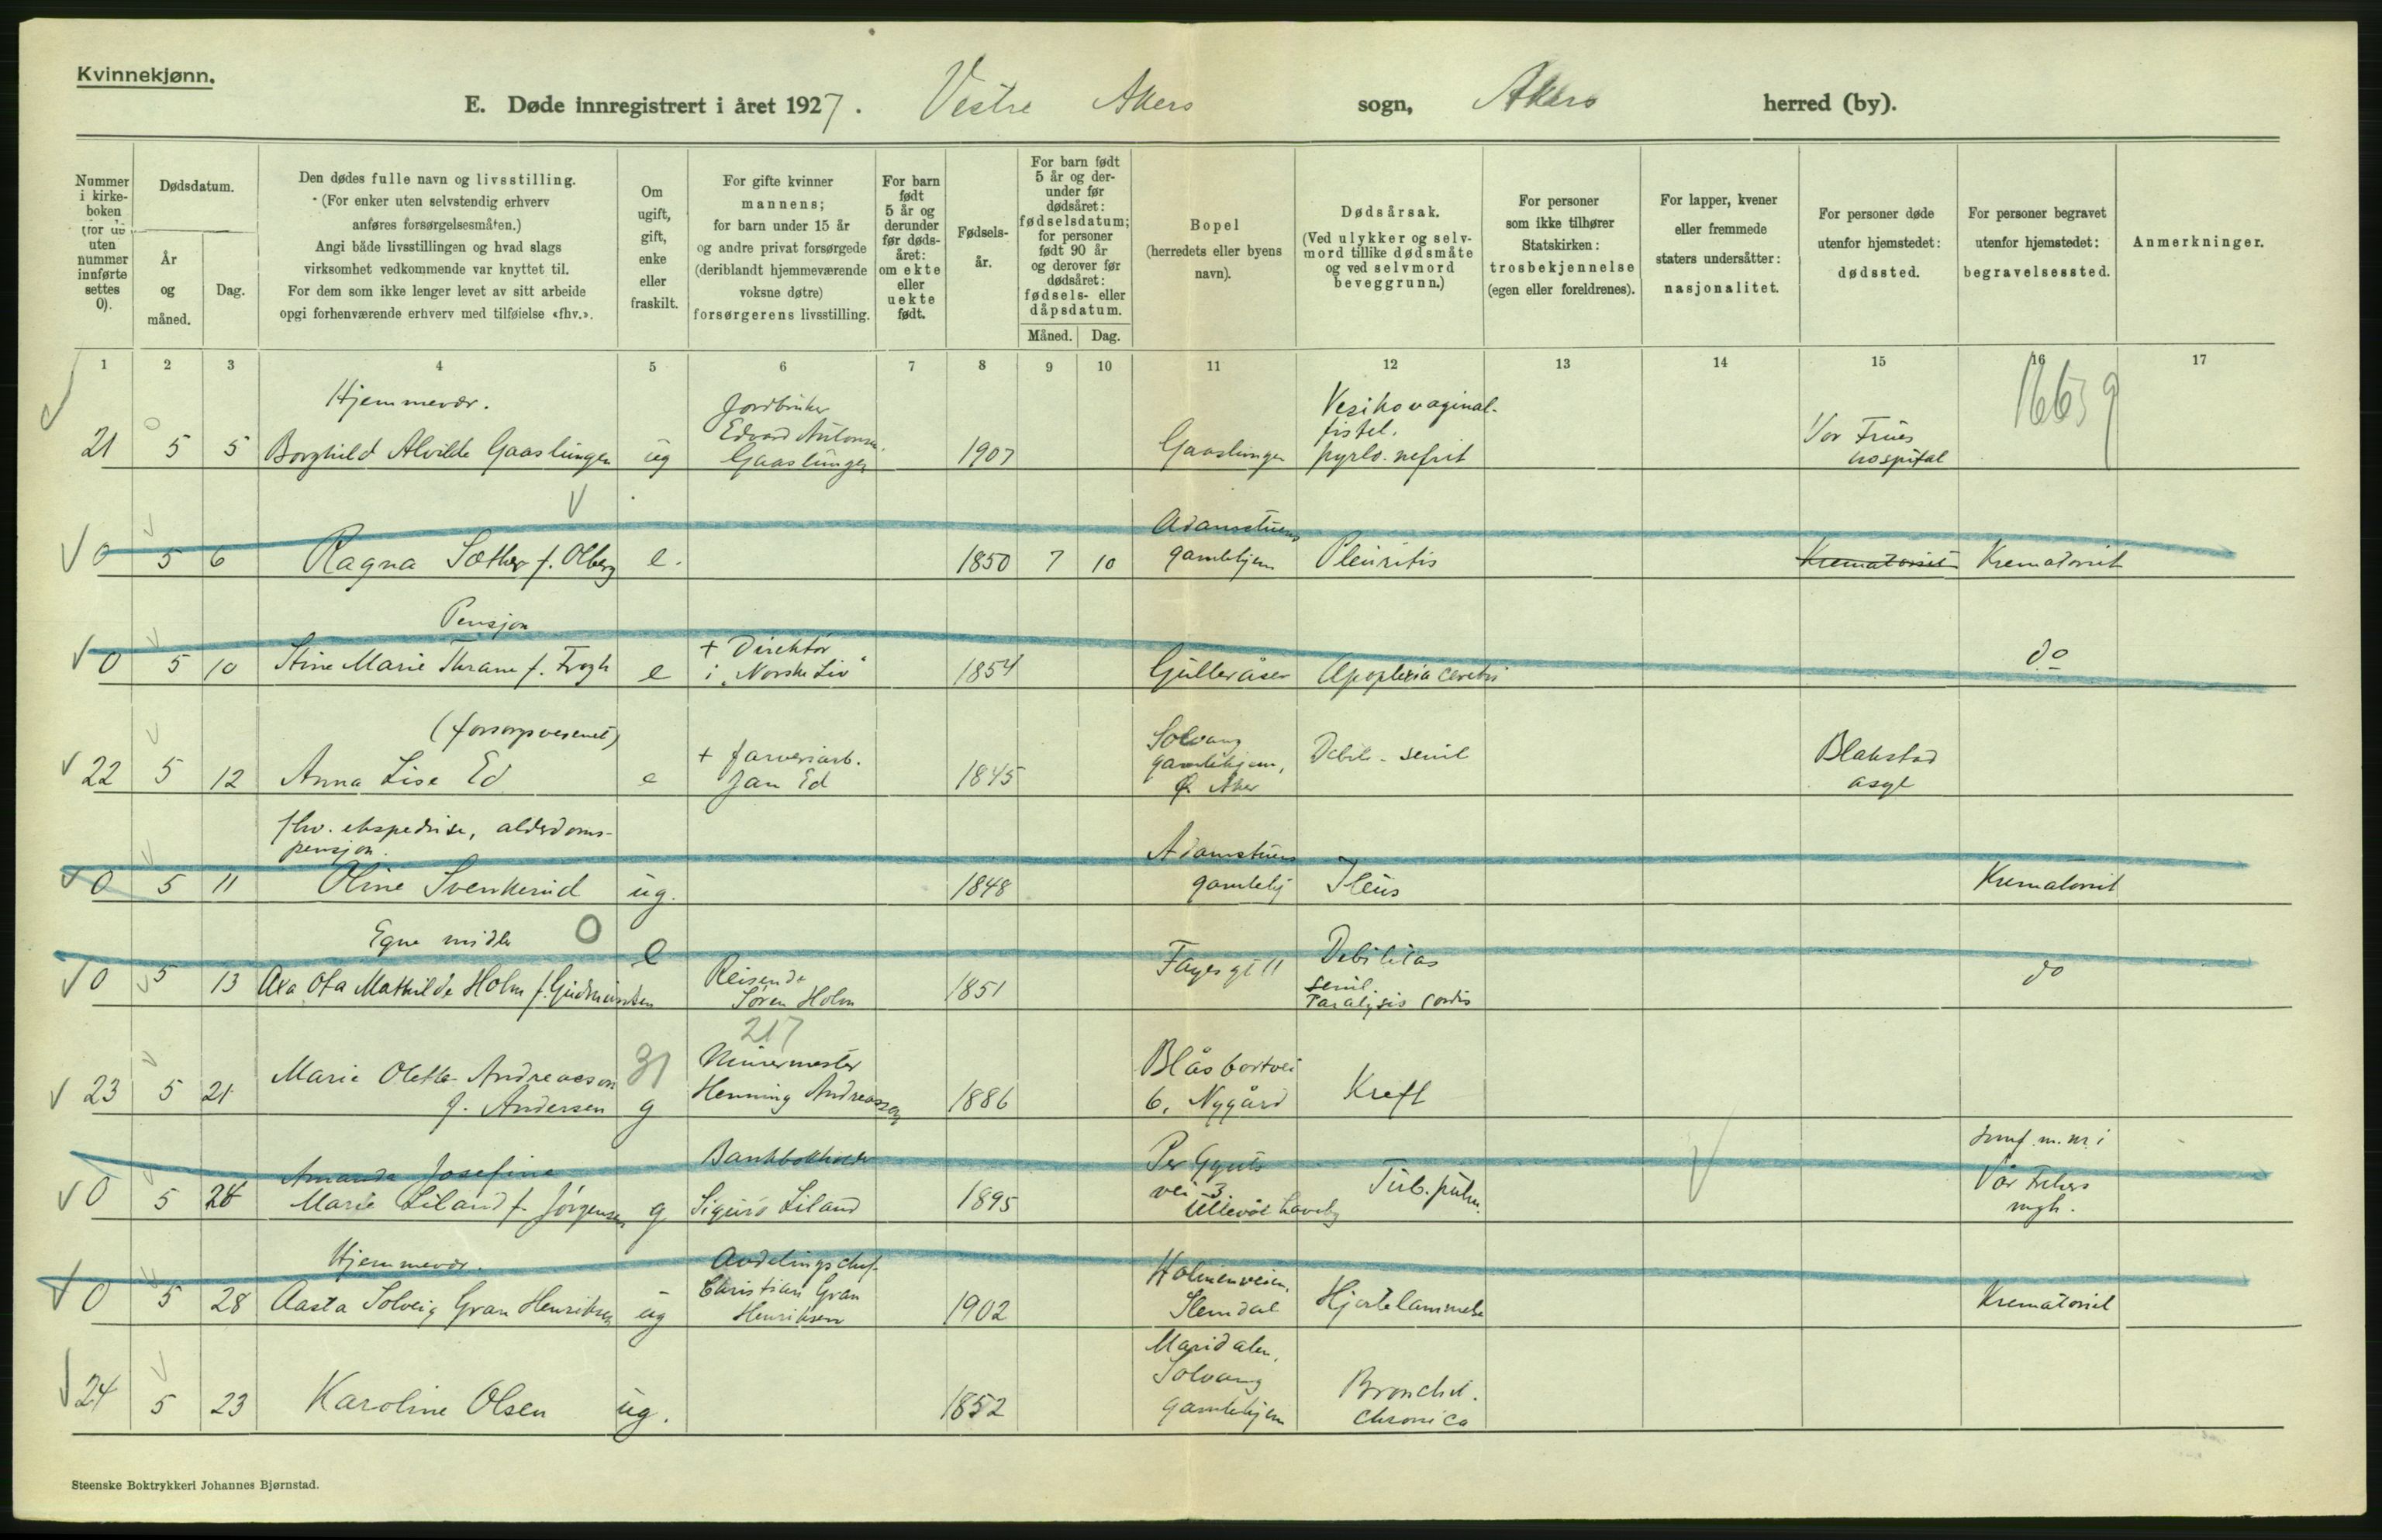 Kvinnekjønn.
E. Døde innregistrert i året 1927. Vestre Akers sogn, Akers herred (by).
Nummer i kirke-boken (for de uten nummer innførte settes 0).
Dødsdatum.
År og måned.
Dag.
Den dødes fulle navn og livsstilling.
(For enker uten selvstendig erhverv
anføres forsørgelsesmåten.)
Angi både livsstillingen og hvad slags
virksomhet vedkommende var knyttet til.
For dem som ikke lenger levet av sitt arbeide
opgi forhenværende erhverv med tilføielse «fhv.».
Om ugift, gift, enke eller fraskilt.
For gifte kvinner
mannens;
for barn under 15 år
og andre privat forsørgede
(deriblandt hjemmeværende
voksne døtre)
forsørgerens livsstilling.
For barn født 5 år og derunder før døds-året: om ekte eller uekte født.
Fødsels-år.
For barn født 5 år og der-under før dødsåret: fødselsdatum; for personer født 90 år og derover før dødsåret: fødsels- eller dåpsdatum.
Måned. Dag.
Bopel
(herredets eller byens
navn).
Dødsårsak.
(Ved ulykker og selv-
mord tillike dødsmåte
og ved selvmord
beveggrunn.)
For personer
som ikke tilhører
Statskirken:
trosbekjennelse
(egen eller foreldrenes).
For lapper, kvener
eller fremmede
staters undersåtter:
nasjonalitet.
For personer døde
utenfor hjemstedet:
dødssted.
For personer begravet
utenfor hjemstedet:
begravelsessted.
Anmerkninger.
1 2 3 4 5 6 7 8 9 10 11 12 13 14 15 16 17
Hjemmevær. Jordbruker Vesikovaginal-
Edvard Antonsen fistel. Vor Frues
21 5 5 Borghild Alvilde Gaaslungen ug Gaaslungen 1907 Gaaslungen pyelo-nefrit hospital
Adamstuens
0 5 6 Ragna Sæther f. Olberg e. 1850 7 10 gamlehjem Pleuritis Krematoriet Krematoriet
Pensjon
+ Direktør
0 5 10 Stine Marie Thrane f. Frogh e i "Norske Liv" 1854 Gulleråsen Apoplexia cerebri do
(forsorgsvesenet) Solvang
+ farveriarb. gamlehjem, Debil. senil Blakstad
22 5 12 Anna Lise Ed e Jan Ed 1845 Ø. Aker asyl
fhv. ekspedrise, alderdoms-
pensjon. Adamstuens
0 5 11 Oline Svenkerud ug. 1848 gamlehj Ileus Krematoriet
Egne midler 0 e
Reisende Fagergill Debilitas
0 5 13 Axa Ota Mathilde Holm f. Gudmundsen Søren Holm 1851 senil. do
Paralysis cordis
217
31 Murermester Blåsbortvei
Marie Olette Andreasson
23 5 21 f. Andersen g Henning Andreasson 1886 6, Nygård Kreft
Amanda Josefine Bankbokholder Per Gynts jmf. m. nr. i
0 5 28 Marie Liland f. Jørgensen g Sigurd Liland 1895 vei 3. Tub. pulm. Vår Frelsers
Ullevål haveby mgh.
Hjemmevær. Avdelingschef Holmenveien,
Christian Gran
0 5 28 Aasta Solveig Gran Henriksen ug Henriksen 1902 Slemdal Hjertelammelse Krematoriet
Maridalen,
Solvang Bronchit.
24 5 23 Karoline Olsen ug. 1852 gamlehjem chronica
Steenske Boktrykkeri Johannes Bjørnstad.